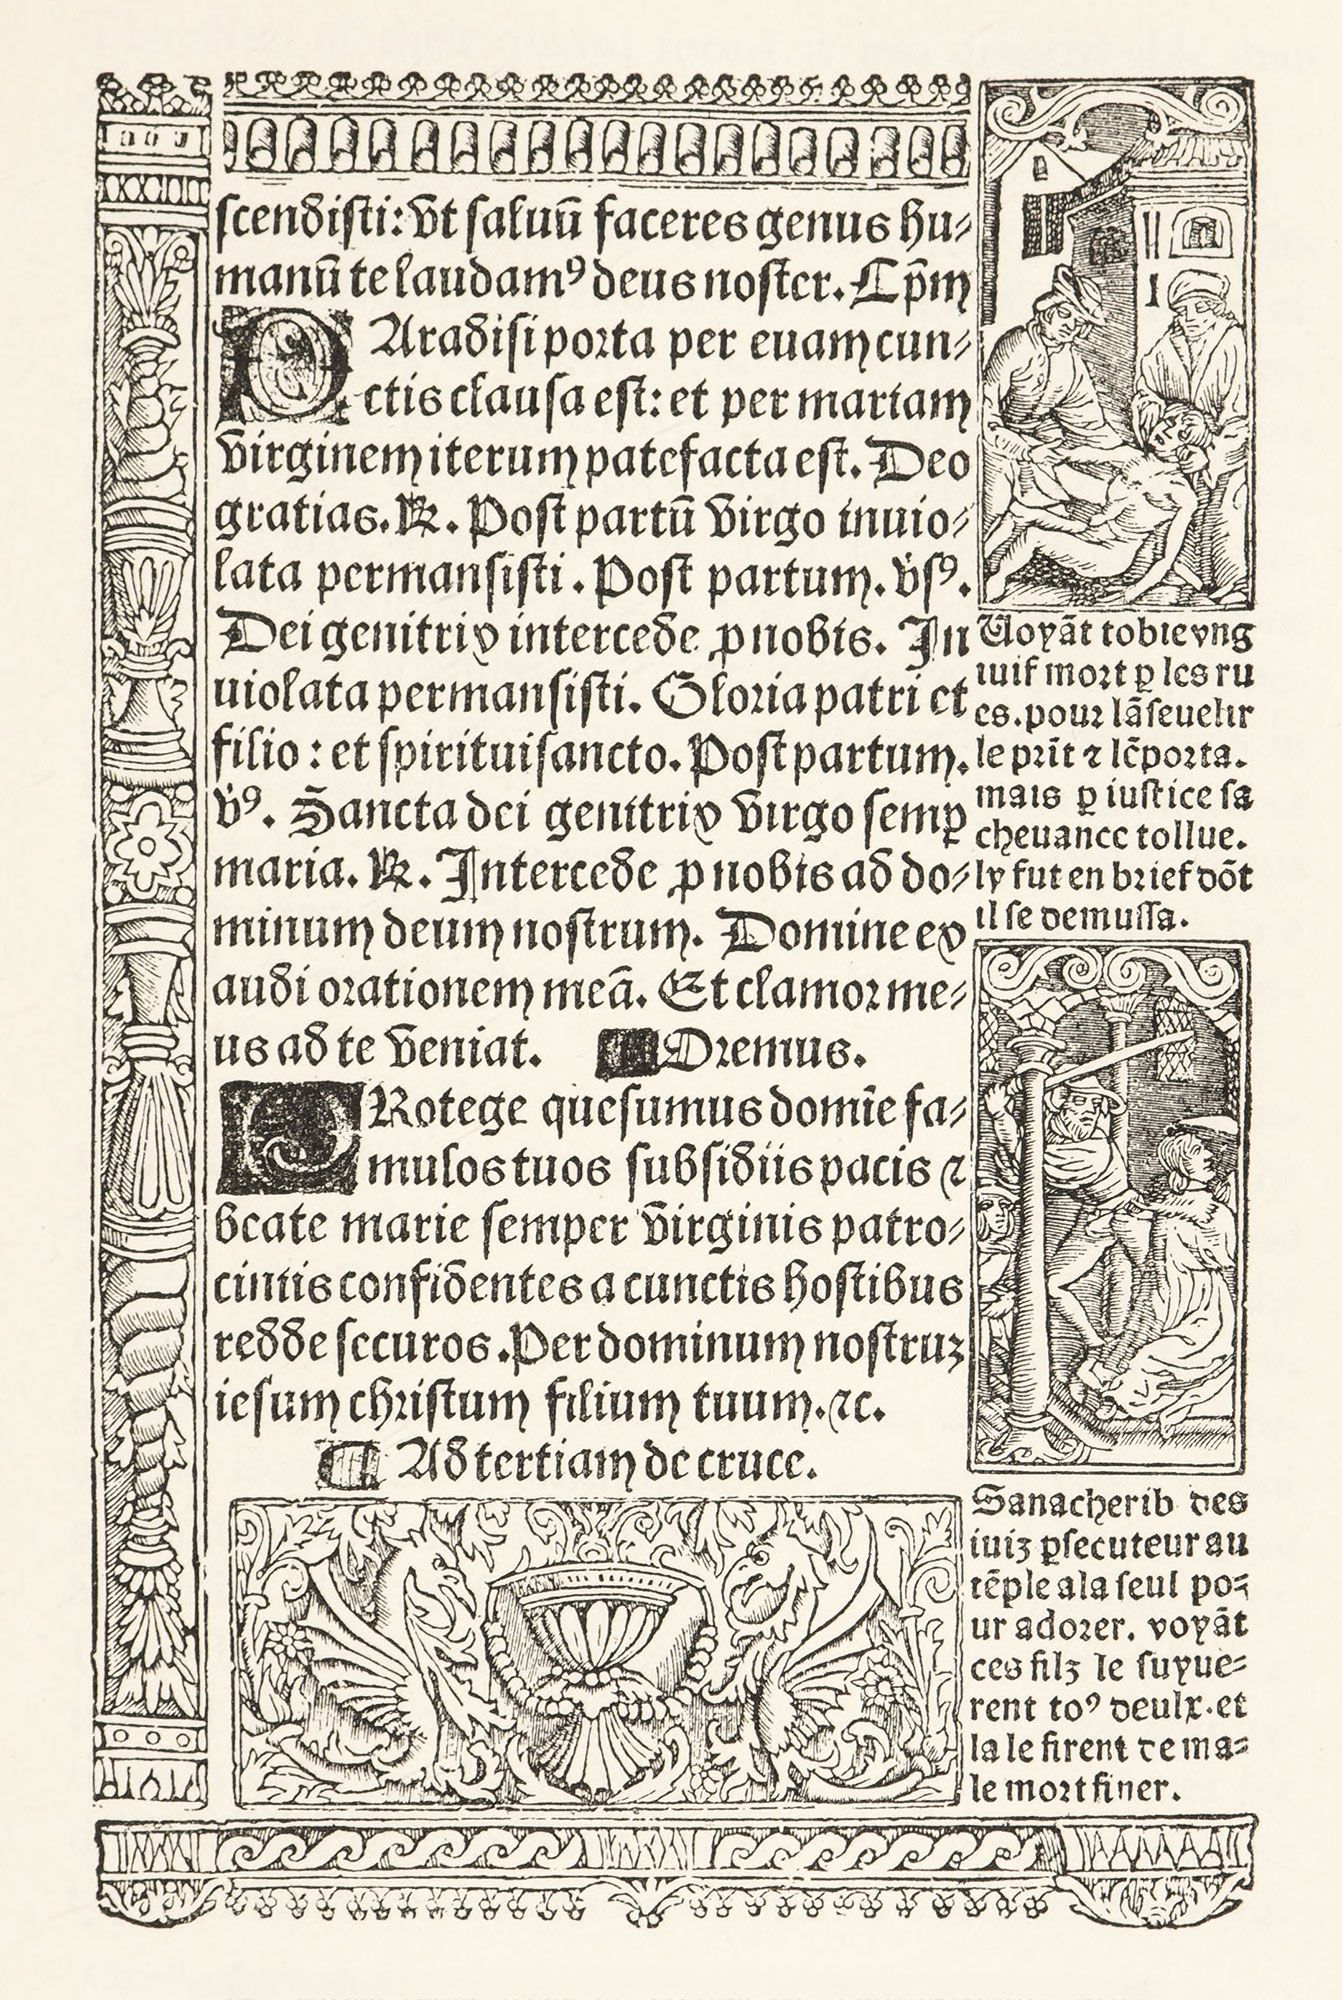 scendisti: vt saluū faceres genus hu⸗
manū te laudamꝰ deus noster. Cpm̄
PAradisi porta per euam cun⸗
ctis clausa est: et per mariam
virginem iterum patefacta est. Deo
gratias. ℟. Post partū virgo inuio⸗
lata permansisti. Post partum. v̓sꝰ.
Dei genitrix intercede ꝓ nobis. In
uiolata permansisti. Gloria patri et
filio: et spirituisancto. Post partum.
v̓ꝰ. Sancta dei genitrix virgo semꝑ
maria. ℟. Intercede ꝓ nobis ad do⸗
minum deum nostrum. Domine ex
audi orationem meā. Et clamor me⸗
us ad te veniat. Oremus.
PRotege quesumus domīe fa⸗
mulos tuos subsidiis pacis ⁊
beate marie semper virginis patro⸗
ciniis confidentes a cunctis hostibus
redde securos. Per dominum nostruꝫ
iesum christum filium tuum. ⁊c.
Ad tertiam de cruce.
Uoyāt tobie vng
iuif mort ꝑ les ru
es. pour lāseuelir
le prīt ⁊ lēporta.
mais ꝑ iustice sa
cheuance tollue.
ly fut en brief dōt
il se demussa.
Sanacherib des
iuiz ꝑsecuteur au
tēple ala seul po⸗
ur adorer. voyāt
ces filz le suyue⸗
rent toꝰ deulx. et
la le firent de ma⸗
le mort finer.